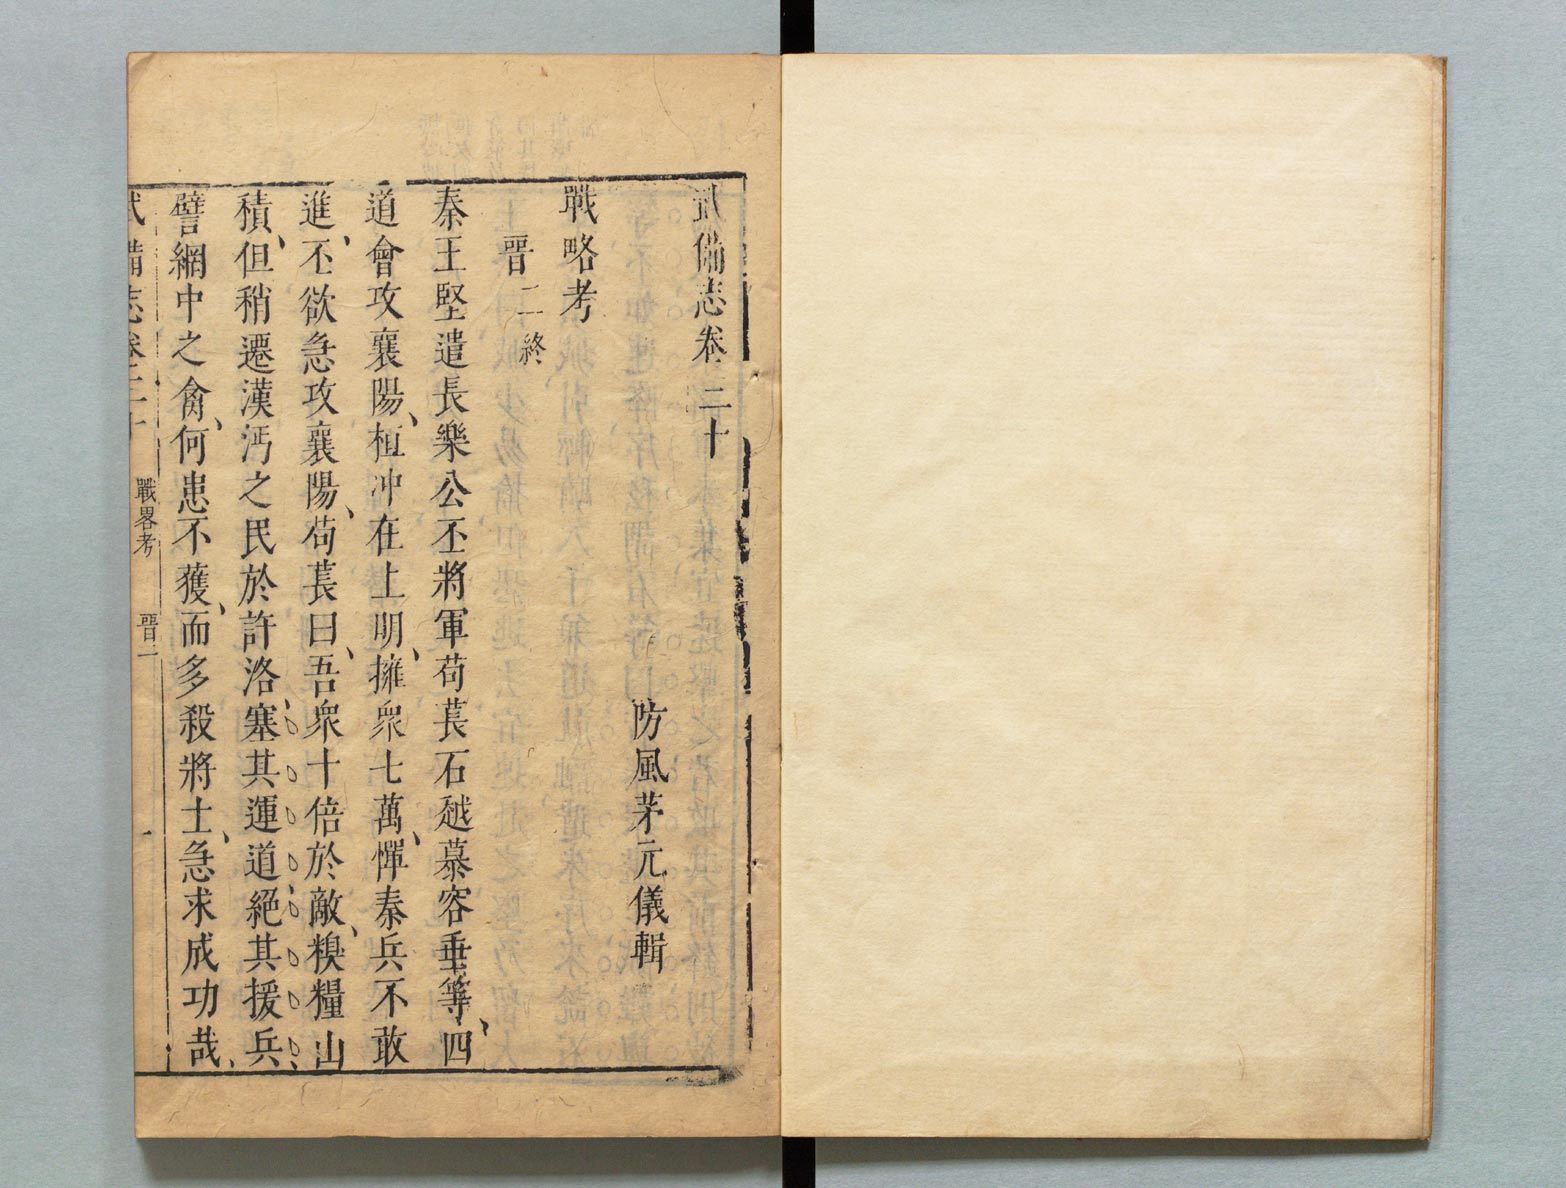 武備志卷二十
防風茅元儀輯
戰略考
晉二終
秦王堅遣長樂公丕將軍苟萇石越慕容垂等、四
道會攻襄陽、桓冲在上明、擁衆七萬、憚秦兵不敢
進、丕欲急攻襄陽、苟萇曰、吾衆十倍於敵、糗糧山
積、但稍遷漢沔之民於許洛、塞其運道絕其援兵、
譬網中之禽、何患不獲、而多殺將士、急求成功哉、
武備志卷二十 戰畧考 晉二 一